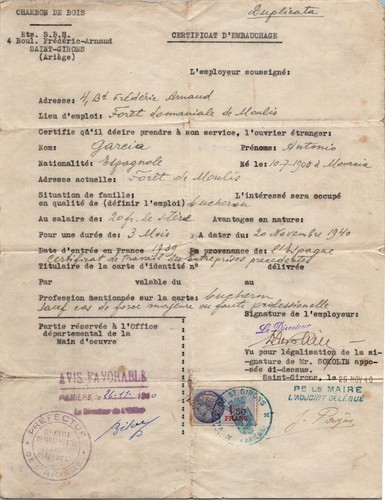 CHARBON DE BOIS
Duplicata
Ets. S.B.H.
4 Boul. Frédéric-Arnaud
SAINT-GIRONS
(Ariège)
CERTIFICAT D'EMBAUCHAGE
L'employeur soussigné:
Adresse: 4, Bt Frédéric Arnaud
Lieu d'emploi: Forêt domaniale de Moulis
Certifie qu'il désire prendre à son service, l'ouvrier étranger:
Nom: Garcia Prénoms: Antonio
Nationalité: Espagnole Né le: 10-7-1900 à Murcia
Adresse actuelle: Forêt de Moulis
Situation de famille: L'intéressé sera occupé
en qualité de (définir l'emploi) bucheron
Au salaire de 20f. le stère Avantages en nature:
Pour une durée de: 3 Mois A dater du 20 Novembre 1940
Date d'entrée en France 1939 En provenance de: l'Espagne
Certificat de travail des entreprises précédentes
Titulaire de la carte d'identité n° délivrée
Par valable du au
Profession mentionnée sur la carte: bucheron
sauf cas de force majeure ou faute professionnelle
Signature de l'employeur:
Partie réservée à l'Office
départemental de la
Main d'oeuvre
Le Directeur
Vu pour légalisation de la si-
gnature de Mr. SOKOLIN appo-
sée di-dessus.
Saint-Girons, le 25 NOV 40
AVIS FAVORABLE
PAMIERS, le 26-11-1940
Le Directeur de l'Office
Pr LE MAIRE
L'ADJOINT DÉLÉGUÉ
PRÉFECTURE
DE L'ARIÈGE
OFFICE
ST GIRONS
1,50
FRANC
(ARIÈGE)